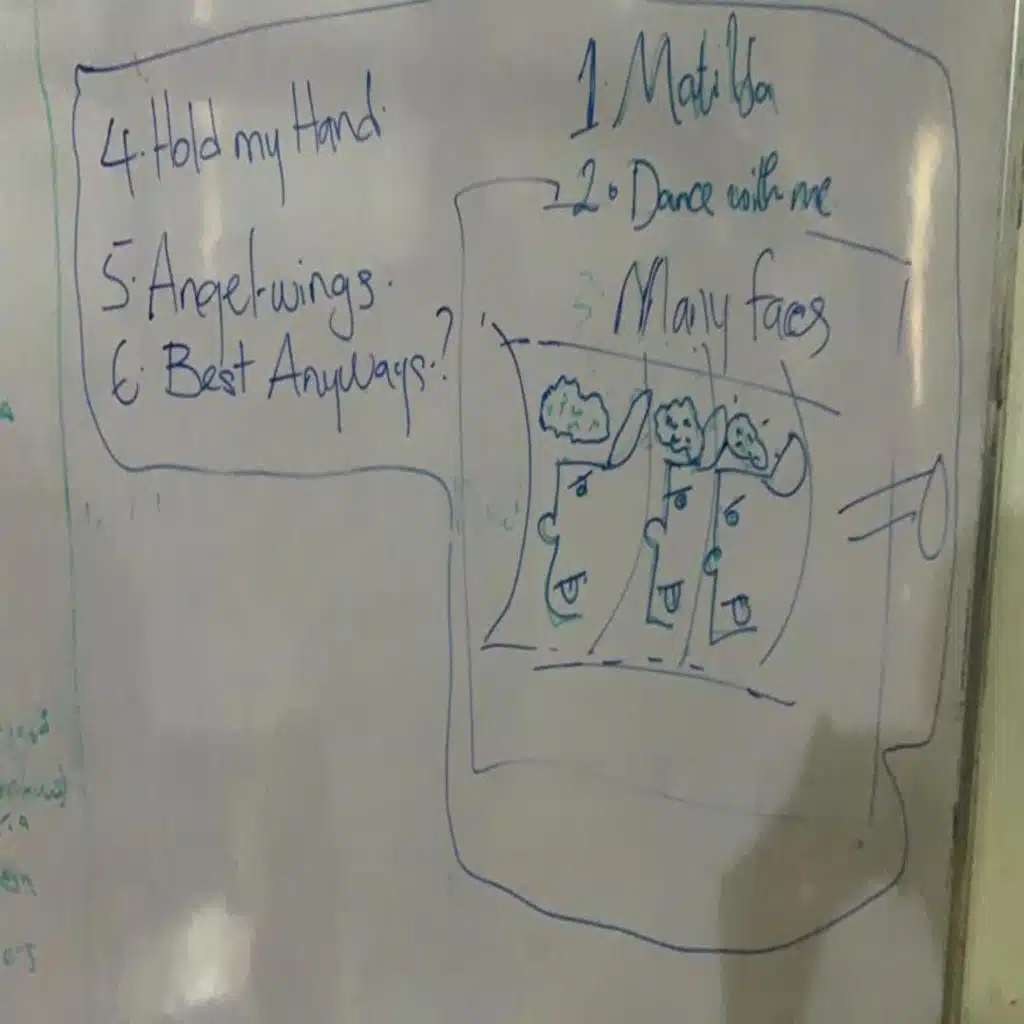 1. Matilda
2. Dance with me
3. Many faces
4. Hold my Hand.
5. Angel-wings.
6. Best Anyways.?